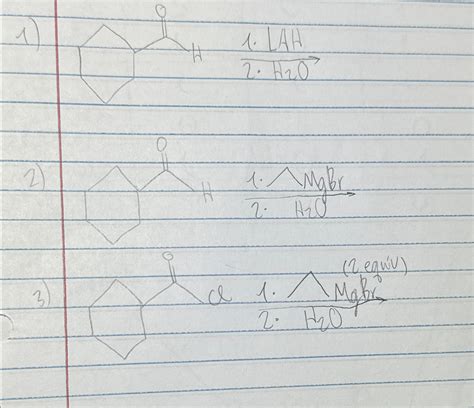 O
1) H 1. LAH
2. H2O
O
2) H 1. MgBr
2. H2O
(2 equiv)
O
3) Cl 1. MgBr
2. H2O